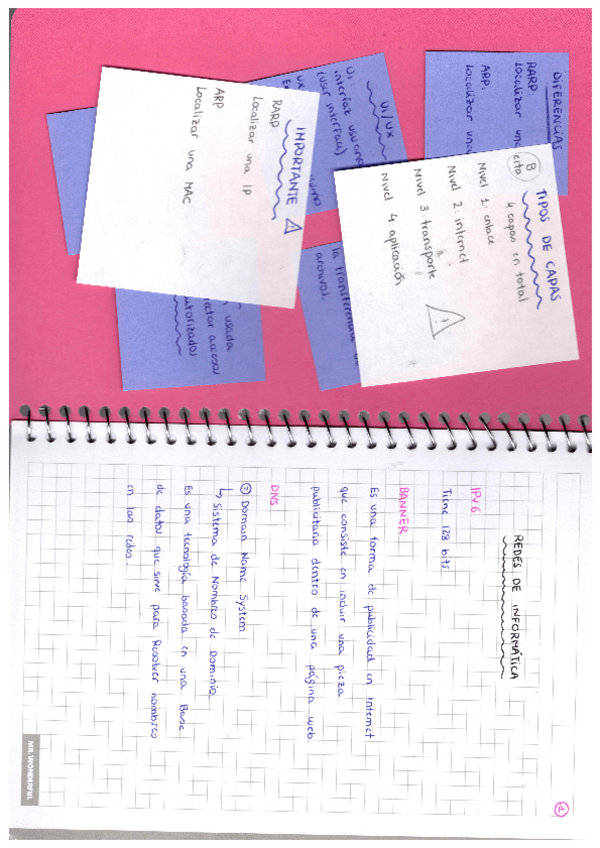 DIFERENCIAS
RARP:
Localizar una
ARP:
Localizar una
UI/UX
UI:
interfaz usuario
(user interface)
UX
TIPOS DE CAPAS
4 capas en total
Nivel 1: enlace
Nivel 2: internet
Nivel 3: transporte
Nivel 4: aplicación
B
cito
!
IMPORTANTE !
RARP
Localizar una IP
ARP
Localizar una MAC
la transferencia de
archivos.
usada
accesos
autorizados
REDES DE INFORMÁTICA
IPV6
Tiene 128 bits
BANNER
Es una forma de publicidad en internet
que consiste en incluir una pieza
publicitaria dentro de una página web.
DNS
Domain Name System
↳ Sistema de Nombres de Dominio.
Es una tecnología basada en una Base
de datos que sirve para Resolver nombres
en las redes.
MR. WONDERFUL